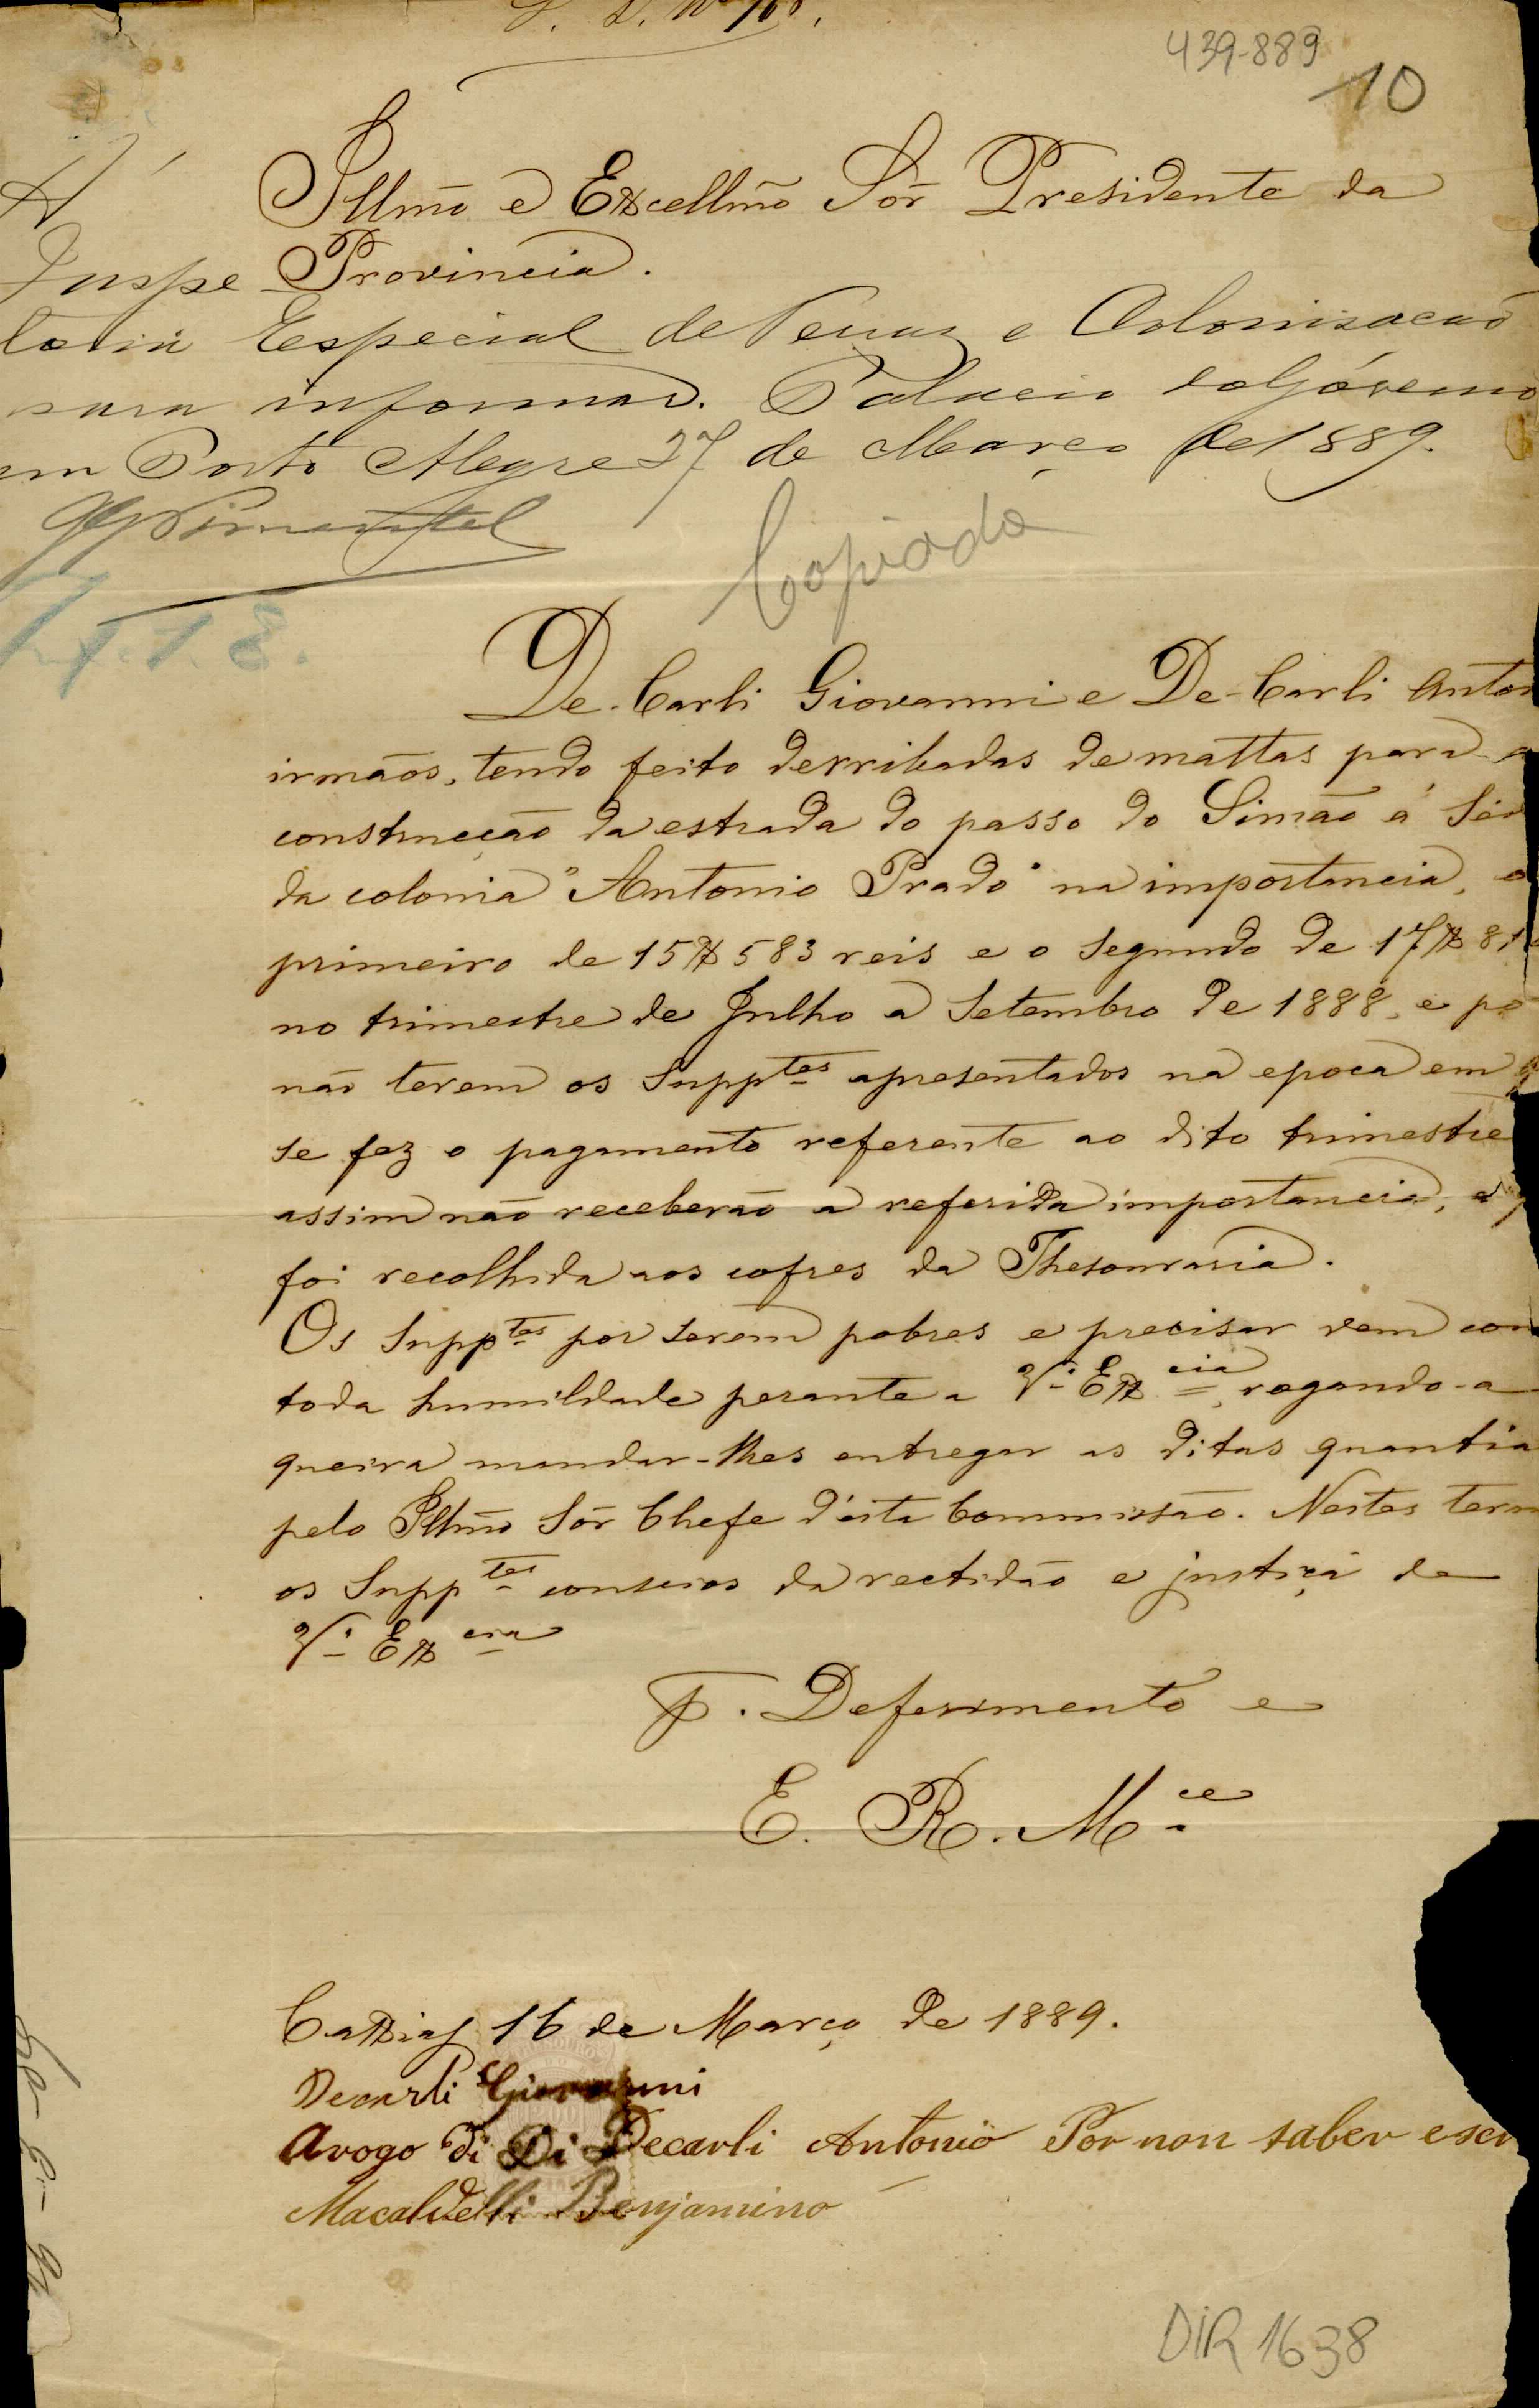 439-889
10
Illmo e Excellmo Sõr Presidente da
Provincia.
A'
Inspe
toria Especial de Terras e Colonisacão
para informar. Palacio do Góverno
em Porto Alegre 27 de Março de 1889.
Pimentel
Copiada
De-Carli Giovanni e De-Carli Anton
irmãos, tendo feito derribadas de mattas para a
construcção da estrada do passo do Simão á Séd
da colonia "Antonio Prado" na importancia, o
primeiro de 15$583 reis e o segundo de 17$81
no trimestre de Julho a Setembro de 1888, e po
não terem os Supptes apresentados na epoca em q
se fez o pagamento referente ao dito trimestre
assim não receberão a referida importancia, e q
foi recolhida aos cofres da Thesouraria.
Os Supptes por serem pobres e precisar vem com
toda humildade perante a V.ª Excia, rogando-a
queira mandar-lhes entregar as ditas quantia
pelo Illmo Sõr Chefe d'esta Commissão. Nestes term
os Supptes conscios da rectidão e justiça de
V.ª Excia
P. Deferimento e
E. R. Mce
Caxias 16 de Março de 1889.
Decarli Giovanni
Arogo di Di Decarli Antonio Por non saber escr
Macaldelli Benjamino
DIR 1638